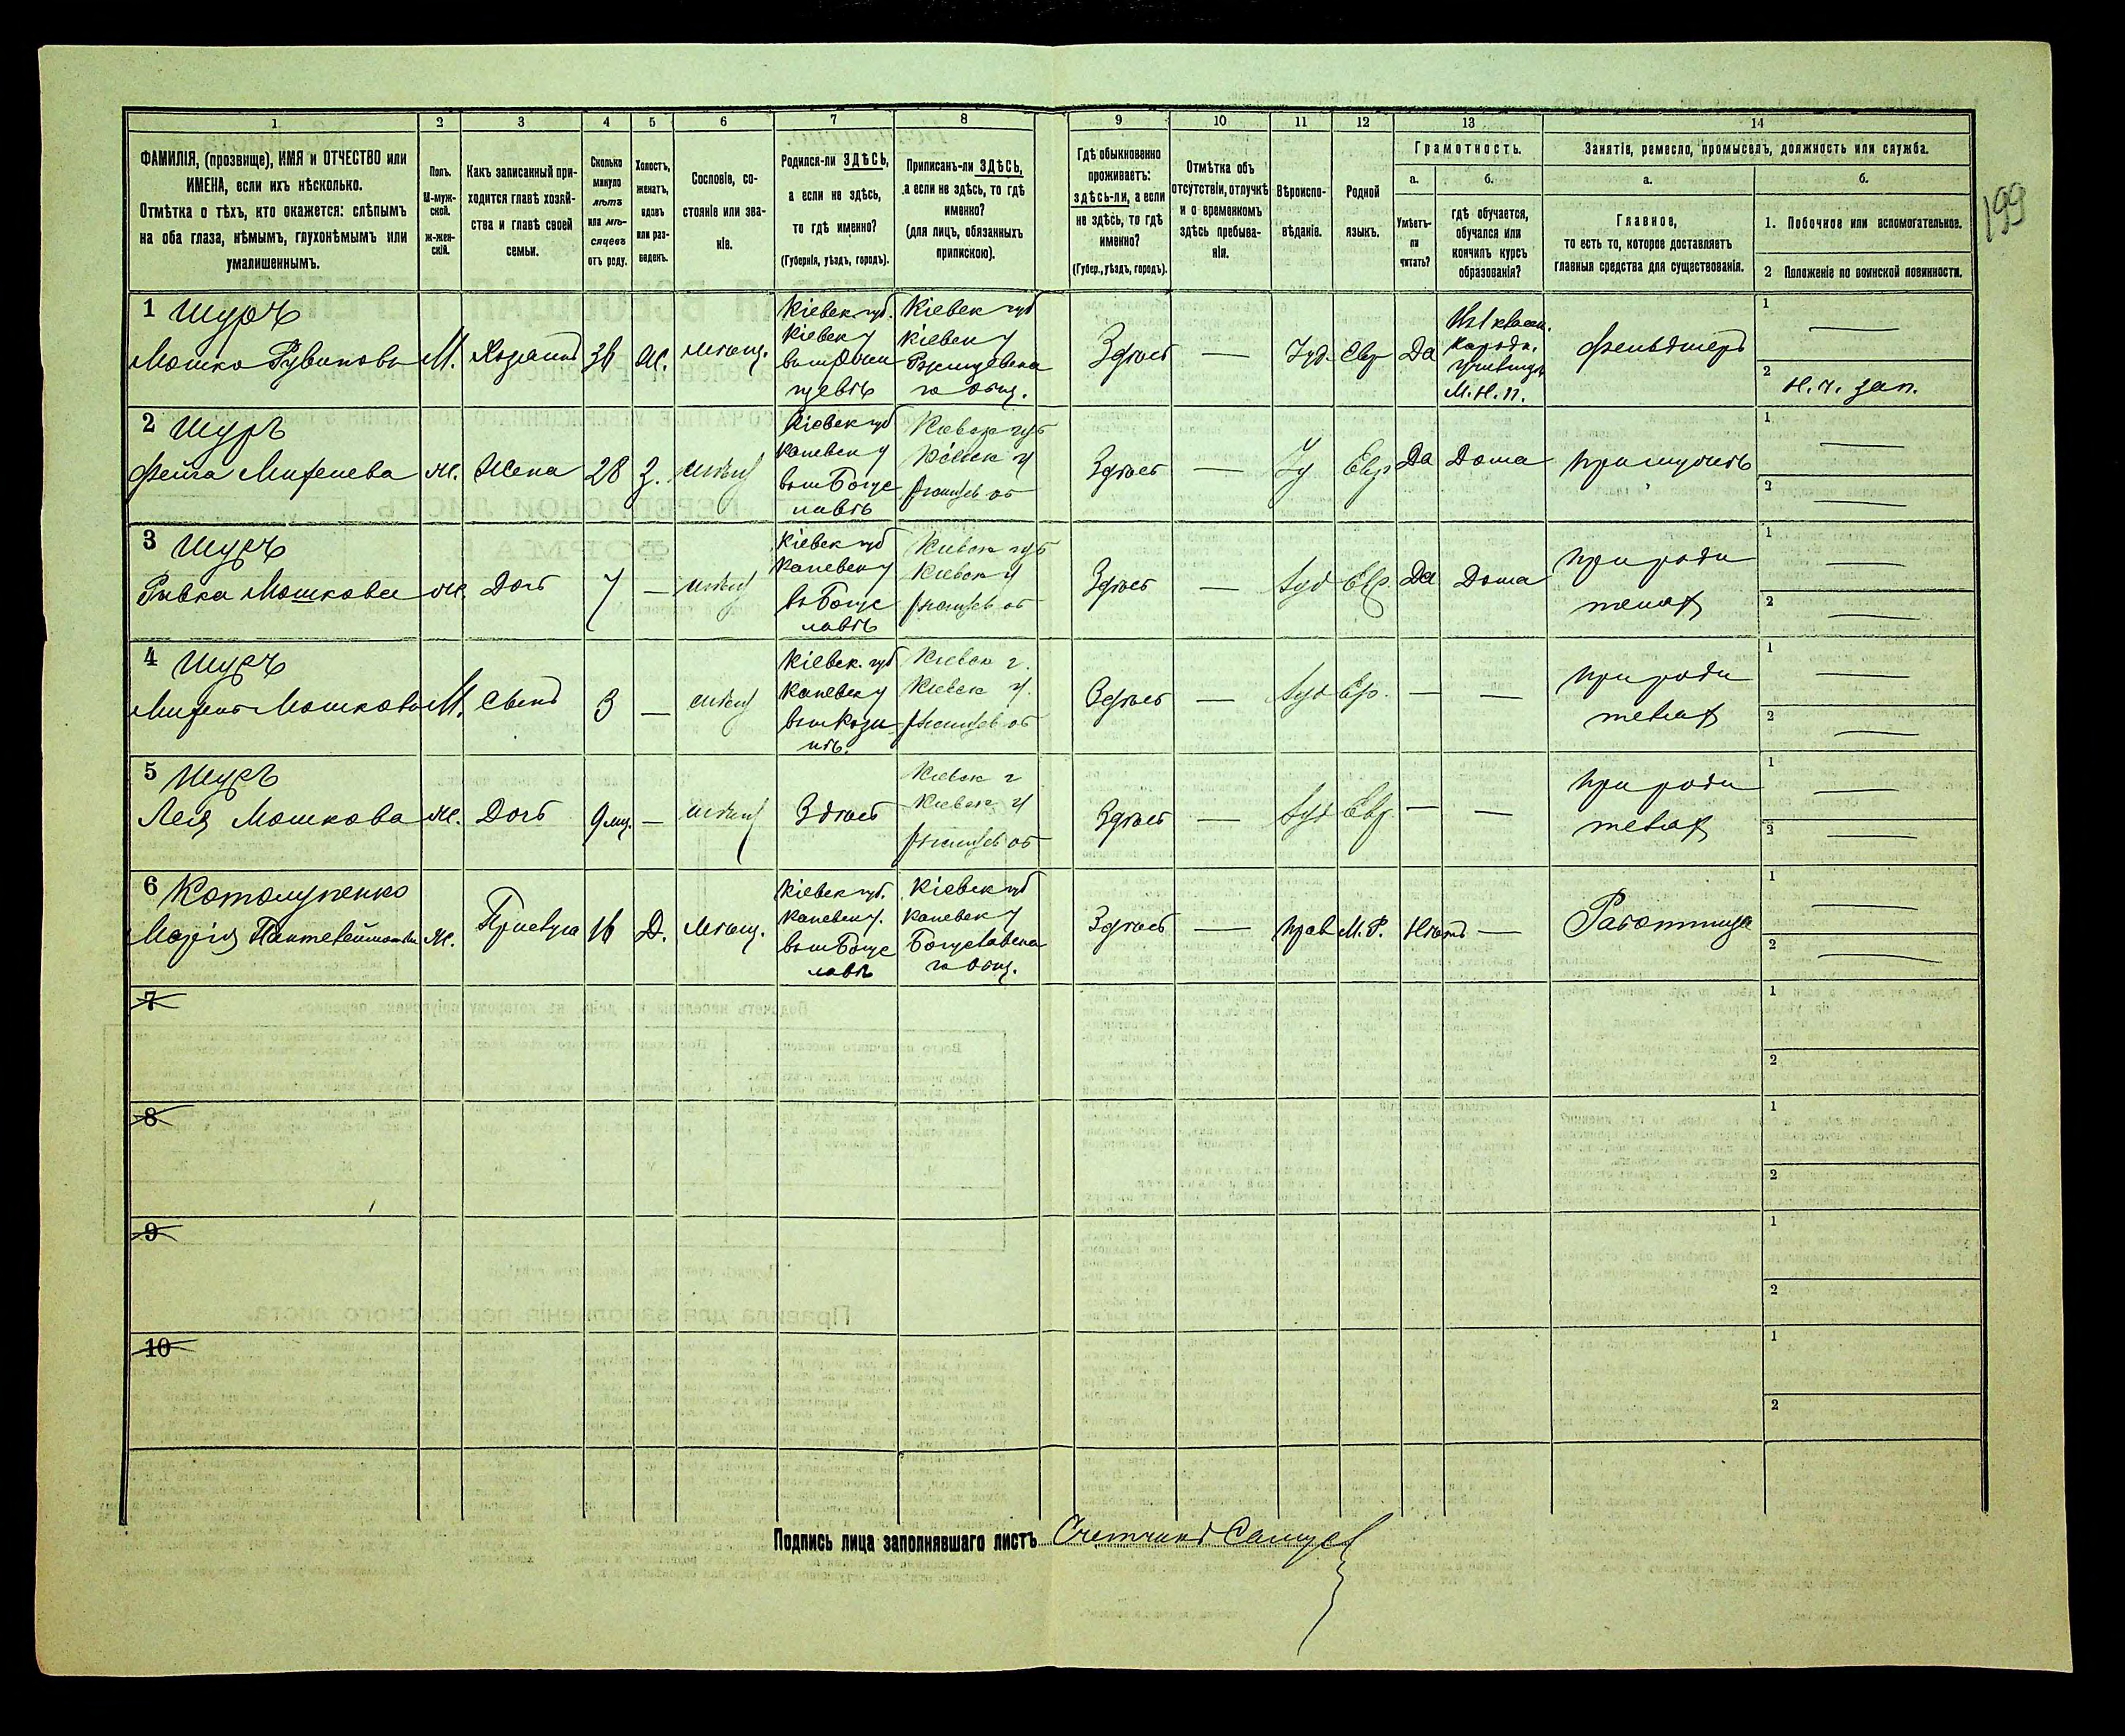 199
1
2
3
4
5
6
7
8
9
10
11
12
13
14
ФАМИЛІЯ, (прозвище), ИМЯ и ОТЧЕСТВО или
ИМЕНА, если ихъ нѣсколько.
Отмѣтка о тѣхъ, кто окажется: слѣпымъ
на оба глаза, нѣмымъ, глухонѣмымъ или
умалишеннымъ.
Полъ.
М-муж-
ской.
ж-жен-
скій.
Какъ записанный при-
ходится главѣ хозяй-
ства и главѣ своей
семьи.
Сколько
минуло
лѣтъ
или мѣ-
сяцевъ
отъ роду.
Холостъ,
женатъ,
вдовъ
или раз-
веденъ.
Сословіе, со-
стояніе или зва-
ніе.
Родился-ли ЗДѢСЬ,
а если не здѣсь,
то гдѣ именно?
(Губернія, уѣздъ, городъ).
Приписанъ-ли ЗДѢСЬ,
а если не здѣсь, то гдѣ
именно?
(для лицъ, обязанныхъ
припискою).
Гдѣ обыкновенно
проживаетъ:
здѣсь-ли, а если
не здѣсь, то гдѣ
именно?
(Губер., уѣздъ, городъ).
Отмѣтка объ
отсутствіи, отлучкѣ
и о временномъ
здѣсь пребыва-
ніи.
Вѣроиспо-
вѣданіе.
Родной
языкъ.
Грамотность.
а.
б.
Умѣетъ-
ли
читать?
гдѣ обучается,
обучался или
кончилъ курсъ
образованія?
Занятіе, ремесло, промыселъ, должность или служба.
а.
б.
Главное,
то есть то, которое доставляетъ
главныя средства для существованія.
1. Побочное или вспомогательное.
2 Положеніе по воинской повинности.
1 Шуръ
Мошко Рувиновъ
М.
Хозяинъ
36
Ж.
Мѣщ.
Кіевск губ.
Кіевск у
Кіевск губ
Кіевск у
го общ.
Здѣсь
—
Іуд.
Евр
Да
Народн.
М.Н.П.
Фельдшеръ
1 —
2
2 Шуръ
Фейга
ж.
Жена
28
З.
Мѣщ
Кіевск губ
Каневск у
въ м Богус
лавѣ
Кіевск губ
Кіевск у
Здѣсь
—
Іу
Евр
Да
Дома
При мужѣ
1 —
2 —
3 Шуръ
Ривка Мошкова
ж.
Дочь
7
—
Мѣщ
Кіевск губ
Каневск у
в Богус
лавѣ
Кіевск губ
Кіевск у
Здѣсь
—
Іуд
Евр.
Да
Дома
При роди
теляхъ
1 —
2 —
4 Шуръ
Мошковъ
М.
Сынъ
3
—
Мѣщ
Кіевск. губ
Каневск у
Кіевск г.
Кіевск у.
Здѣсь
—
Іуд
Евр.
—
—
При роди
теляхъ
1 —
2 —
5 Шуръ
Лея Мошкова
ж.
Дочь
9 мц.
—
Мѣщ
Здѣсь
Кіевск г
Кіевск у
Здѣсь
—
Іуд
Евр
—
—
При роди
теляхъ
1 —
2 —
6
Марія
ж.
Прислуга
16
Д.
Мѣщ.
Кіевск губ.
Каневск у.
въ м Богус
лавѣ
Кіевск губ
Каневск у
Богуславска
го общ.
Здѣсь
—
Прав
М.Р.
Нѣтъ
—
Работница
1 —
2 —
7
1
2
8
1
2
9
1
2
10
1
2
Подпись лица заполнявшаго листъ Счетчикъ